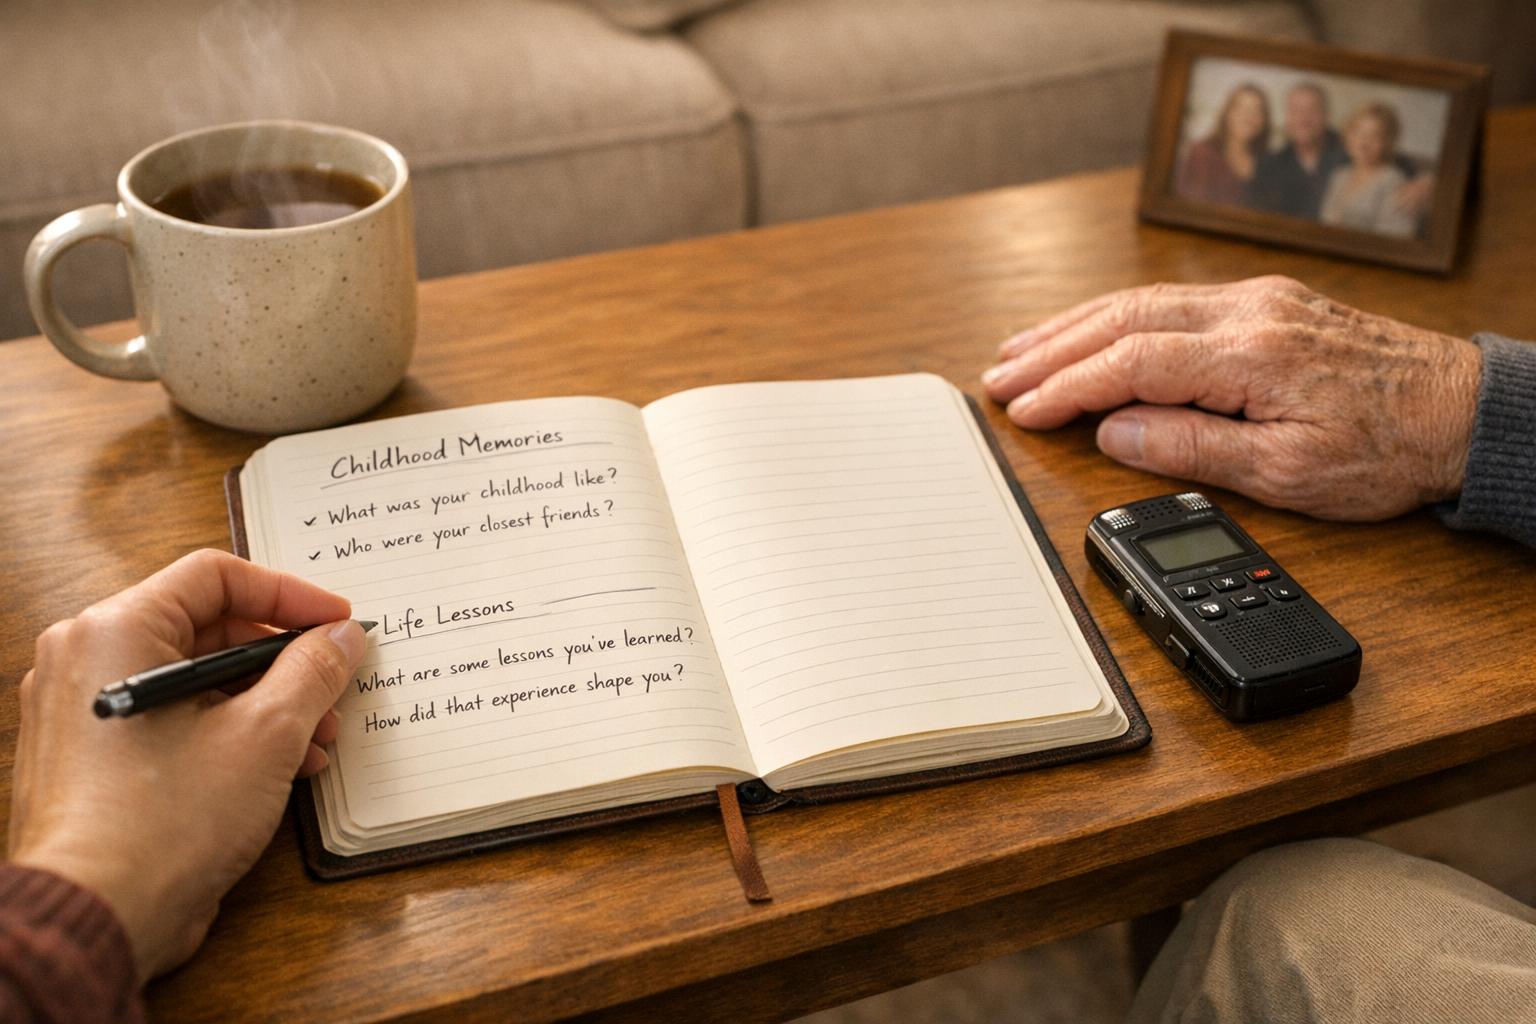 Childhood Memories
✓ What was your childhood like?
✓ Who were your closest friends?
Life Lessons
What are some lessons you've learned?
How did that experience shape you?